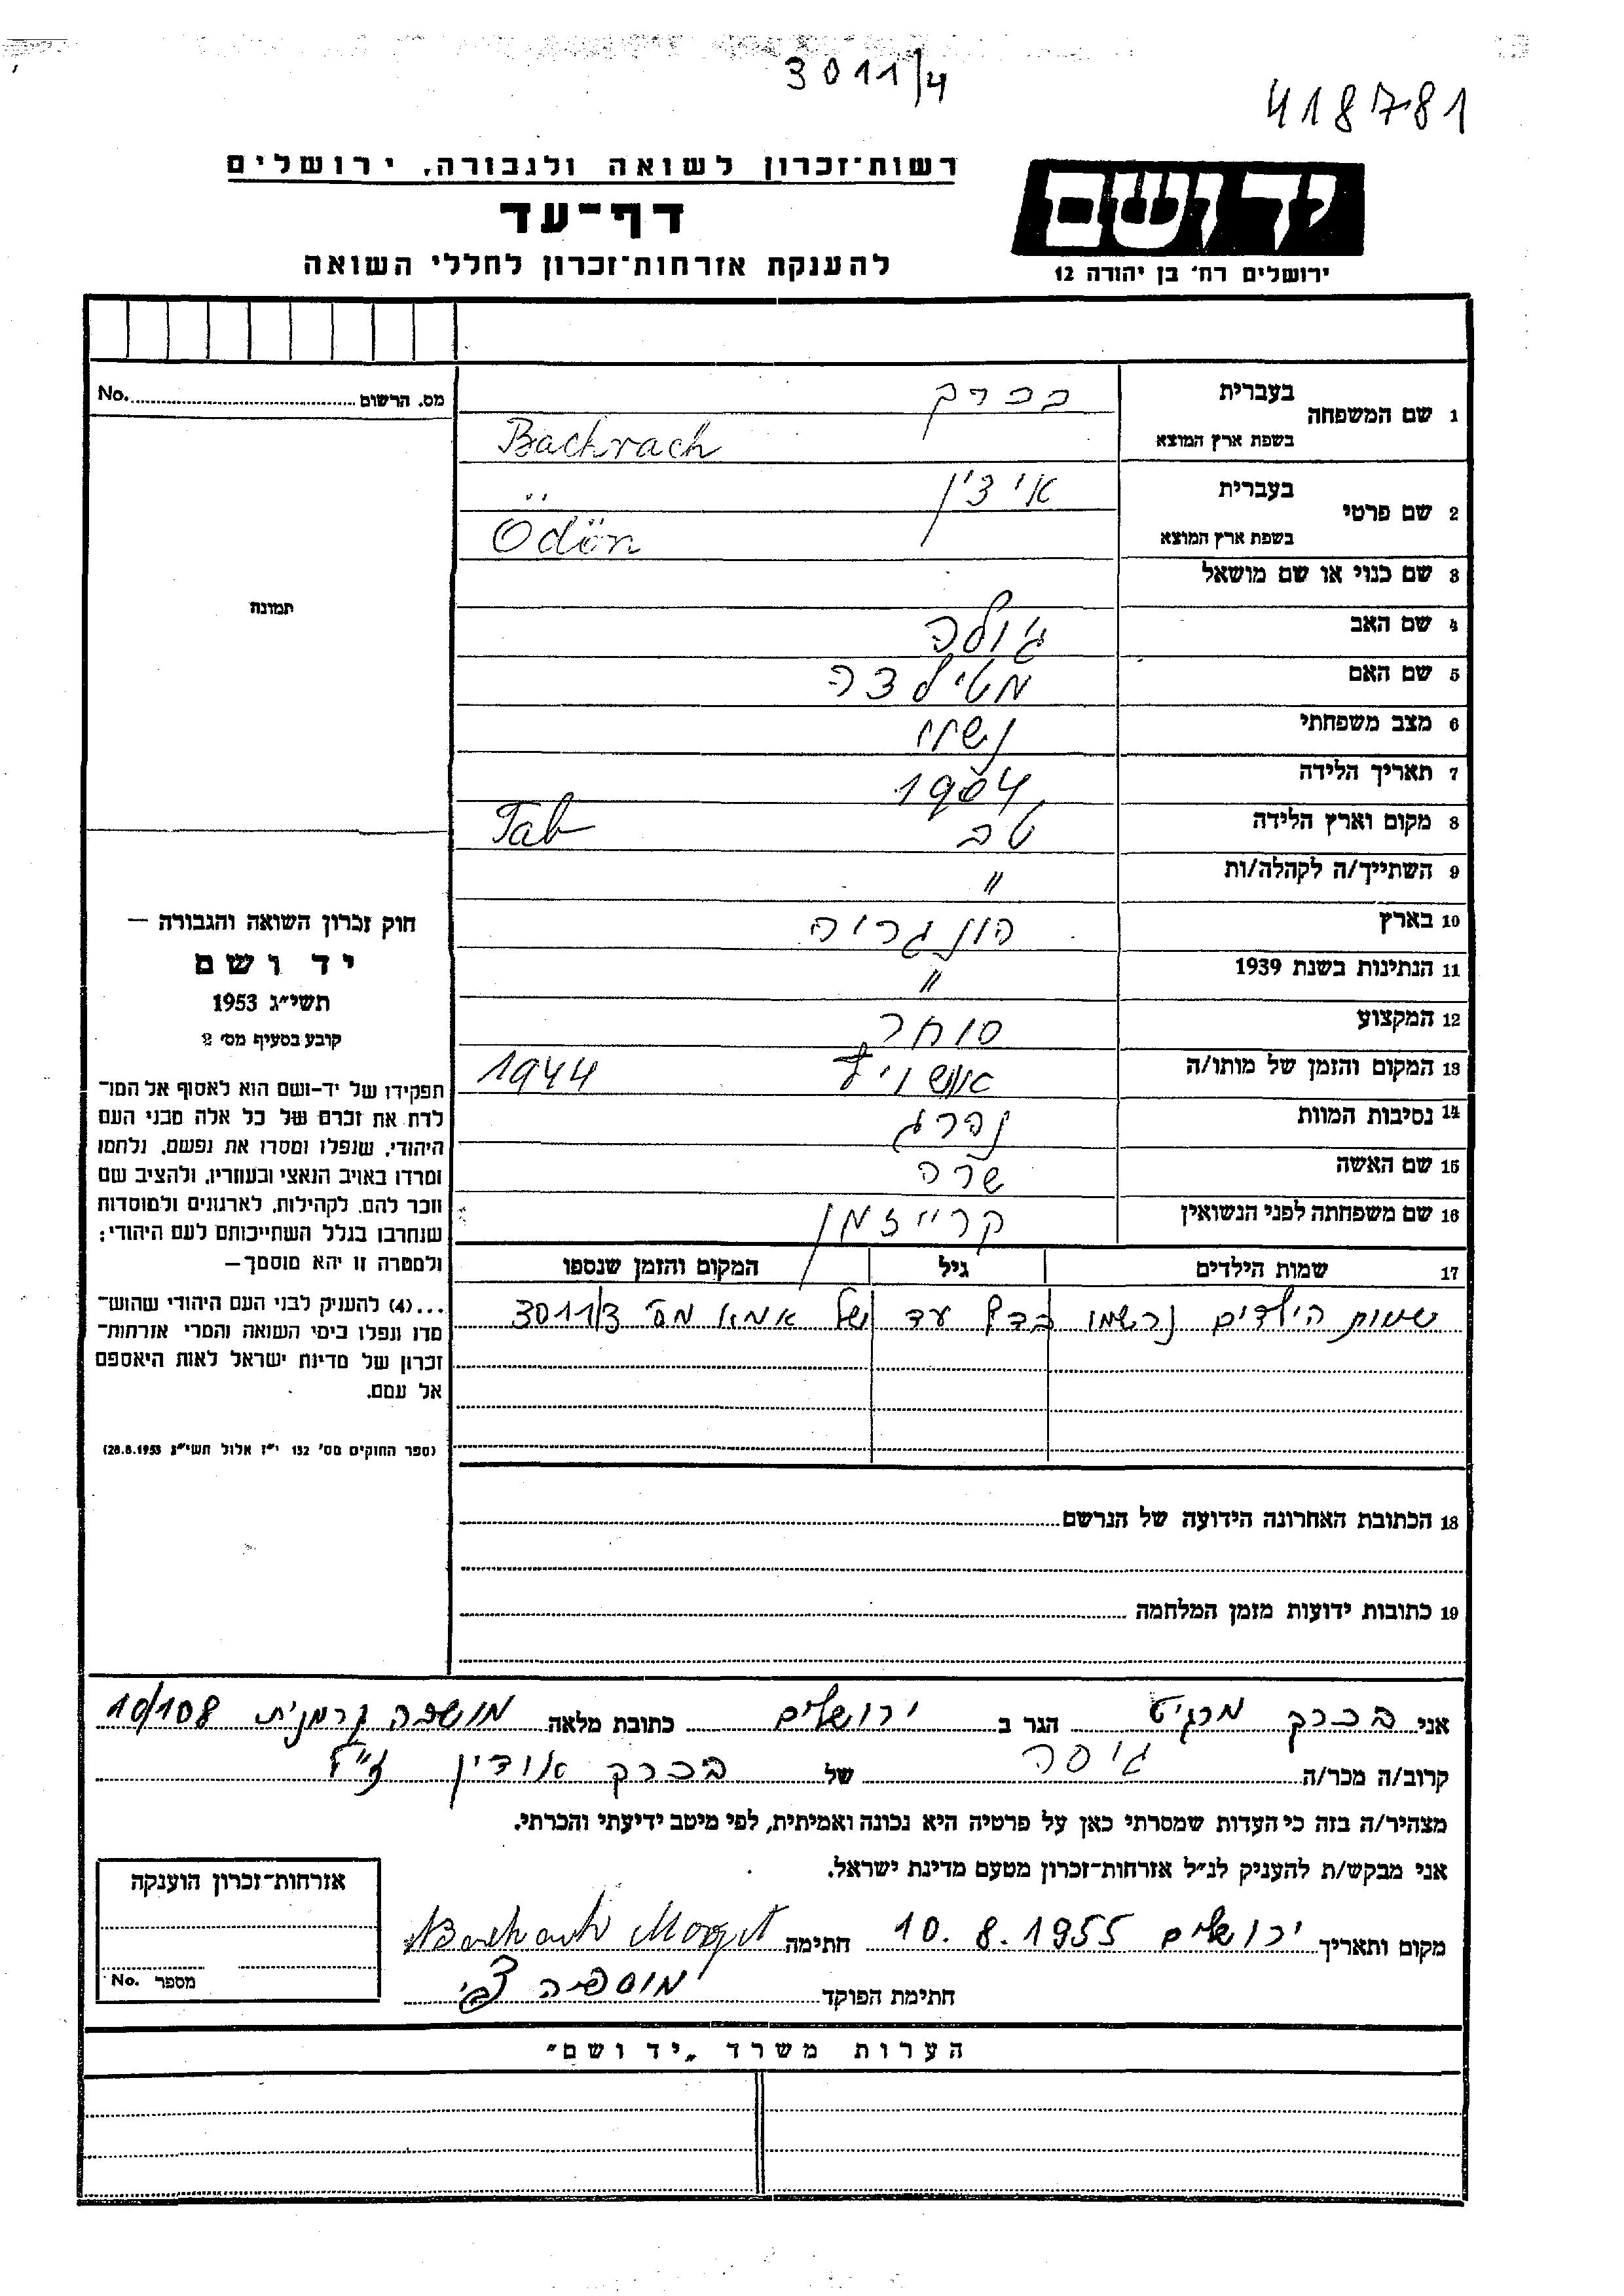 3011/4
418781
רשות־זכרון לשואה ולגבורה, ירושלים
דף־עד
להענקת אזרחות־זכרון לחללי השואה
יד ושם
ירושלים רח' בן יהודה 12
מס. הרשום No.
1 שם המשפחה
בעברית בכרך
בשפת ארץ המוצא Bachrach
2 שם פרטי
בעברית אידין
בשפת ארץ המוצא Ödön
3 שם כנוי או שם מושאל
תמונה
4 שם האב גולב
5 שם האם מטילדה
6 מצב משפחתי נשוי
7 תאריך הלידה 1904
8 מקום וארץ הלידה טב Tab
9 השתייך/ה לקהלה/ות "
10 בארץ הונגריה
11 הנתינות בשנת 1939 "
12 המקצוע סוחר
13 המקום והזמן של מותו/ה אושויץ 1944
14 נסיבות המוות נהרג
15 שם האשה שרה
16 שם משפחתה לפני הנשואין קרייזמן
17 שמות הילדים גיל המקום והזמן שנספו
שמות הילדים נרשמו בדף עד של אמא מס' 3011/3
חוק זכרון השואה והגבורה –
יד ושם
תשי"ג 1953
קובע בסעיף מס' 2
תפקידו של יד-ושם הוא לאסוף אל המו־
לדת את זכרם של כל אלה מבני העם
היהודי, שנפלו ומסרו את נפשם, נלחמו
ומרדו באויב הנאצי ובעוזריו, ולהציב שם
וזכר להם, לקהילות, לארגונים ולמוסדות
שנחרבו בגלל השתייכותם לעם היהודי;
ולמטרה זו יהא מוסמך –
...(4) להעניק לבני העם היהודי שהוש־
מדו ונפלו בימי השואה והמרי אזרחות־
זכרון של מדינת ישראל לאות היאספם
אל עמם.
(ספר החוקים מס' 132 י"ז אלול תשי"ג 28.8.1953)
18 הכתובת האחרונה הידועה של הנרשם
19 כתובות ידועות מזמן המלחמה
אני בכרך מרגיט הגר ב ירושלים כתובת מלאה מושבה גרמנית 10/108
קרוב/ה מכר/ה גיסה של בכרך אודין ז"ל
מצהיר/ה בזה כי העדות שמסרתי כאן על פרטיה היא נכונה ואמיתית, לפי מיטב ידיעתי והכרתי.
אני מבקש/ת להעניק לנ"ל אזרחות־זכרון מטעם מדינת ישראל.
מקום ותאריך ירושלים 10.8.1955 חתימה Bachrach Margit
חתימת הפוקד
אזרחות־זכרון הוענקה
מספר No.
הערות משרד „יד ושם"